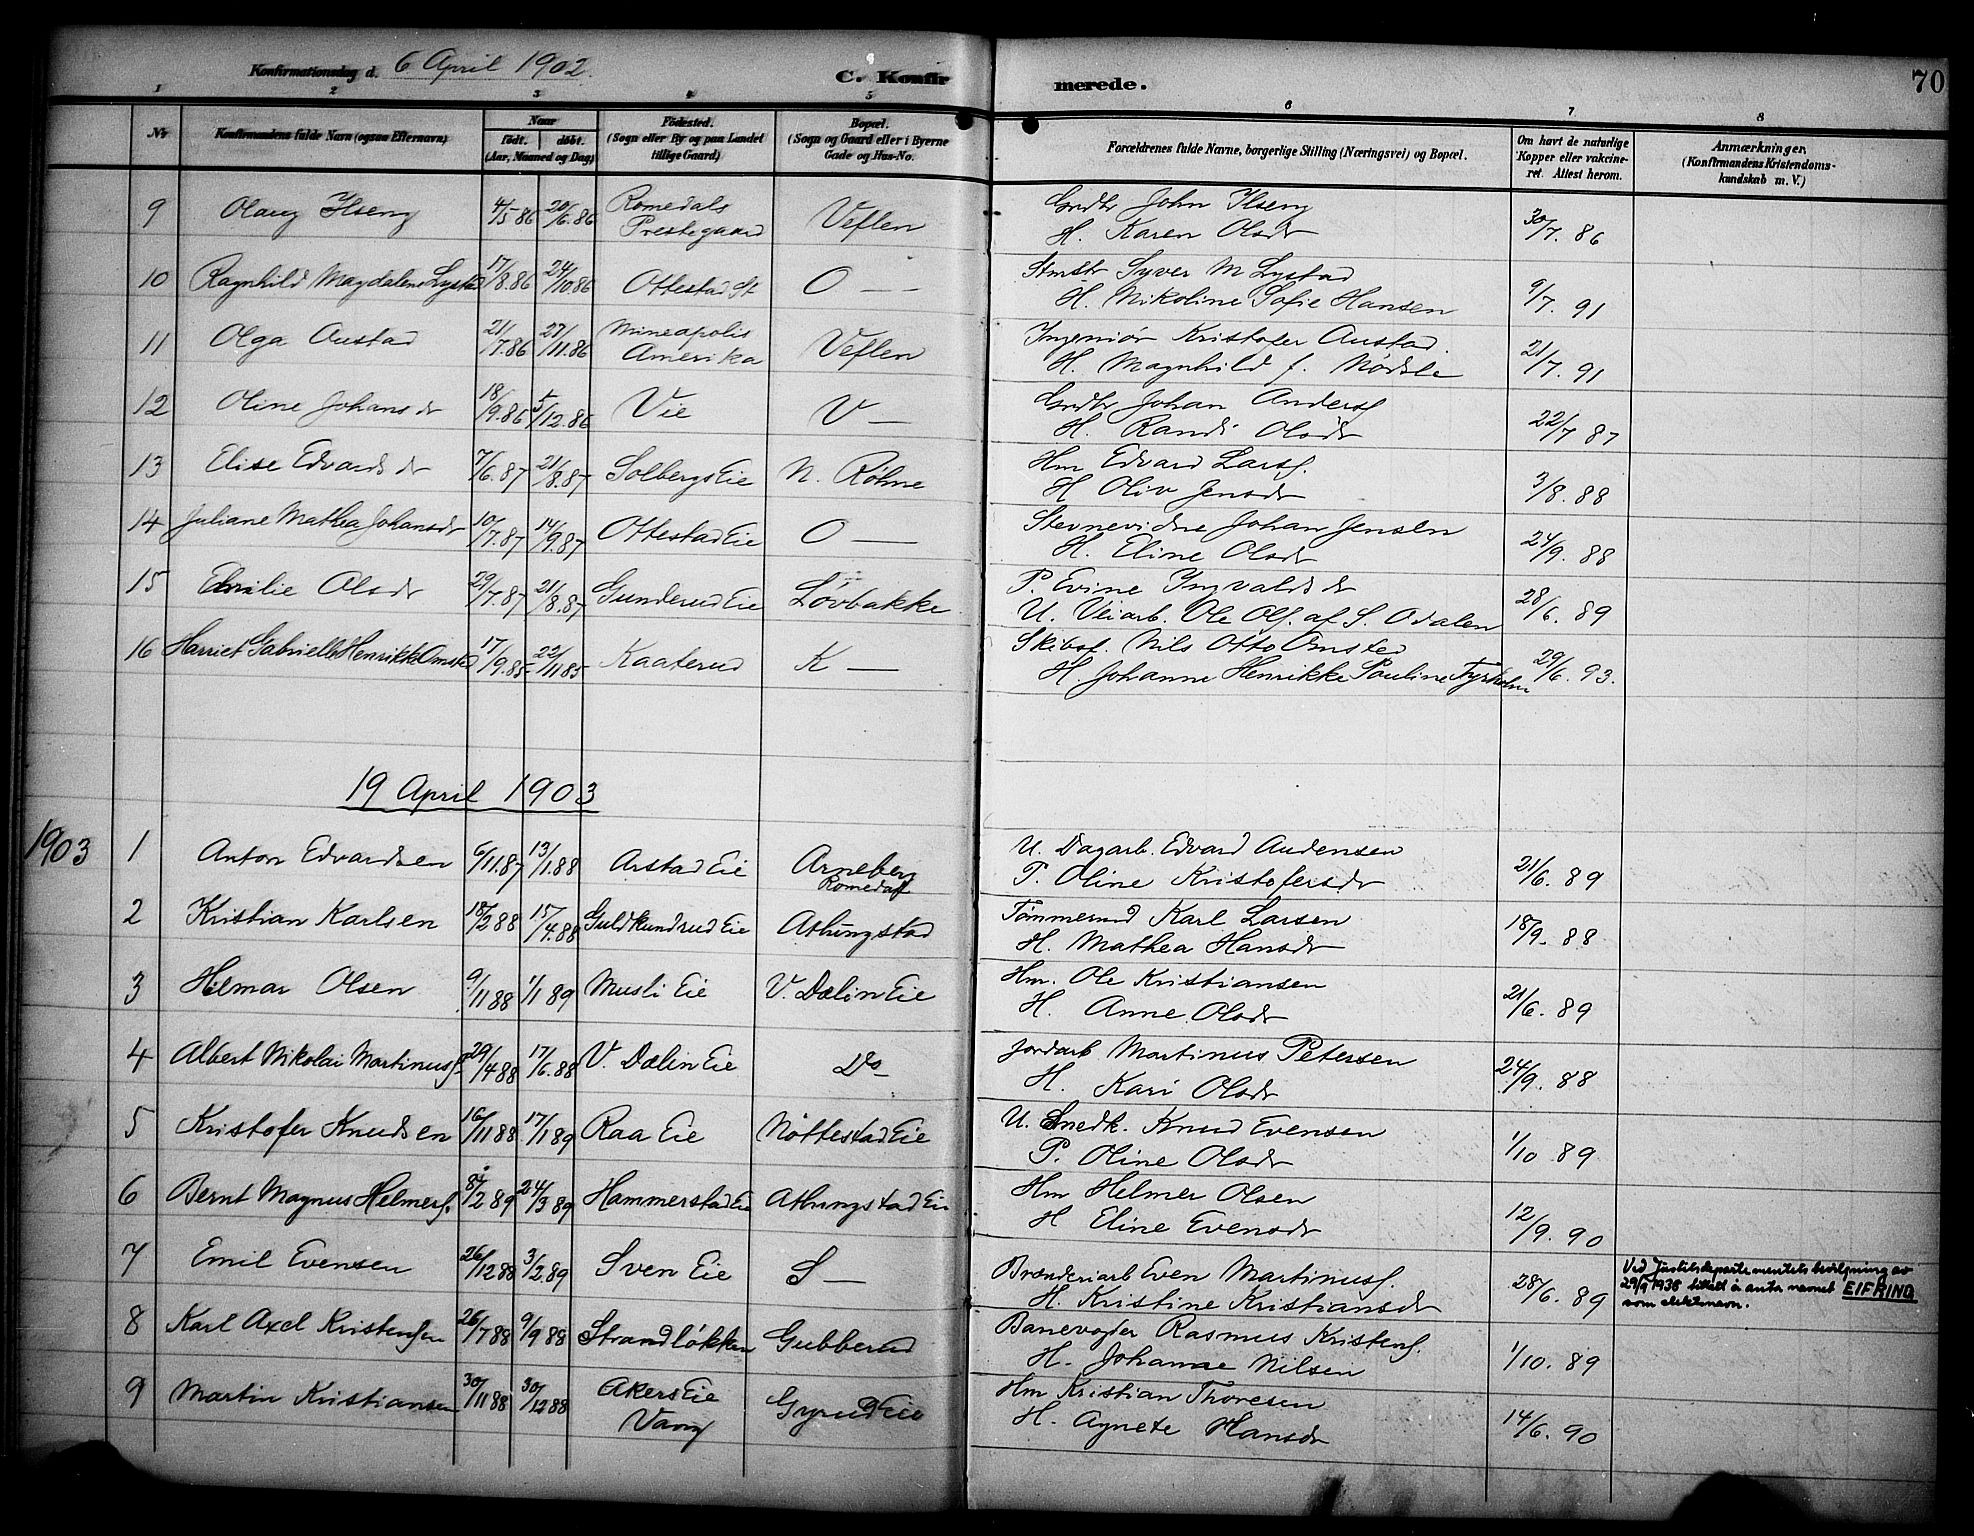 Konfirmationsdag d. 6 April 1902.
C. Konfirmerede.
70
1 2 3 4 5 6 7 8
No
Konfirmandens fulde Navn (ogsaa Efternavn)
Naar
födt. döbt.
(Aar, Maaned og Dag)
Födested.
(Sogn eller By og paa Landet
tillige Gaard)
Bopæl.
(Sogn og Gaard eller i Byerne
Gade og Hus-No.
Forældrenes fulde Navne, borgerlige Stilling (Næringsvei) og Bopæl.
Om havt de naturlige
Kopper eller vakcine-
ret. Attest herom.
Anmærkninger.
(Konfirmandens Kristendoms-
kundskab m. V.)
9 Olaug Ilseng 4/5 86 20/6.86 Romedals Prestegaard Veflen Grdbr John Ilseng
H. Karen Olsdr 30/7. 86
10 Ragnhild Magdalene Lystad 17/8.86 24/10.86 Ottestad St O — Stmstr Syver M Lystad
H. Nikoline Sofie Hansen 9/7. 91
11 Olga Austad 21/7.86 27/11.86 Mineapolis Amerika Veflen Ingeniør Kristofer Austad.
H. Magnhild f. Nødsle 21/7. 91
12 Oline Johansdr 18/9.86 5/12.86 Vie V — Grdbr Johan Andersf
H. Randi Olsdr 22/7 87
13 Elise Edvardsdr 7/6.87 21/8.87 Solbergs Eie N. Røhne Hm Edvard Larsf.
H Oliv Jensdr 3/8. 88
14 Juliane Mathea Johansdr 10/7.87 14/9.87 Ottestad Eie O — Stevnevidne Johan Jensen
H. Eline Olsdr 24/9. 88
15 Emilie Olsdr 29/7.87 21/8.87 Gunderud Eie Løvbakke P. Evine Ingvaldsdr
U. Veiarb. Ole Olf. af S. Odalen 28/6. 89
16 Harriet Gabrielle Henrikke Omsted 17/9.85 22/11 85 Kaaterud K — Skibsf. Nils Otto Omsted
H. Johanne Henrikke Pauline Fyrholm 29/6. 93.
19 April 1903
1903
1 Anton Edvardsen 6/11.87 13/1.88 Arstad Eie Arneberg Romedal U. Dagarb. Edvard Audensen
P. Oline Kristofersdr 21/6. 89
2 Kristian Karlsen 18/2 88 15/4.88 Guldkundrud Eie Athungstad Tømmermd Karl Larsen
H. Mathea Hansdr 18/9. 88
3 Helmar Olsen 9/11 88 1/1 89 Musli Eie V. Dælin Eie Hm. Ole Kristiansen
H. Anne Olsdr 21/6. 89
4 Albert Nikolai Martinusf 29/4 88 17/6.88 V. Dælin Eie Do Jordarb Martinus Petersen
H. Kari Olsdr 24/9. 88
5 Kristofer Knudsen 16/11 88 17/1 89 Raa Eie Nøttestad Eie U. Snedk. Knud Evensen
P. Oline Olsdr 1/10 89
6 Bernt Magnus Helmersf. /2 89 24/3 89 Hammerstad Eie Athungstad Eie Hm Helmer Olsen
H Eline Evensdr 12/9. 90
7 Emil Evensen 26/12 88 3/2.89 Sven Eie S — Brænderiarb Even Martinusf.
H. Kristine Kristiansdr 28/6. 89 Ved Justisdepartementets bevilgning av
29/9 1938 tillatt å anta navnet EIFRING
som slektsnavn.
8 Karl Axel Kristensen 26/7 88 9/9 88 Strandløkken Gubberud Banevogter Rasmus Kristensf.
H. Johanne Nilsen 1/10. 89
9 Martin Kristiansen 30/11 88 30/12 88 Akers Eie Vang Gyrud Eie Hm Kristian Thoresen
H. Agnete Hansdr 14/6. 90